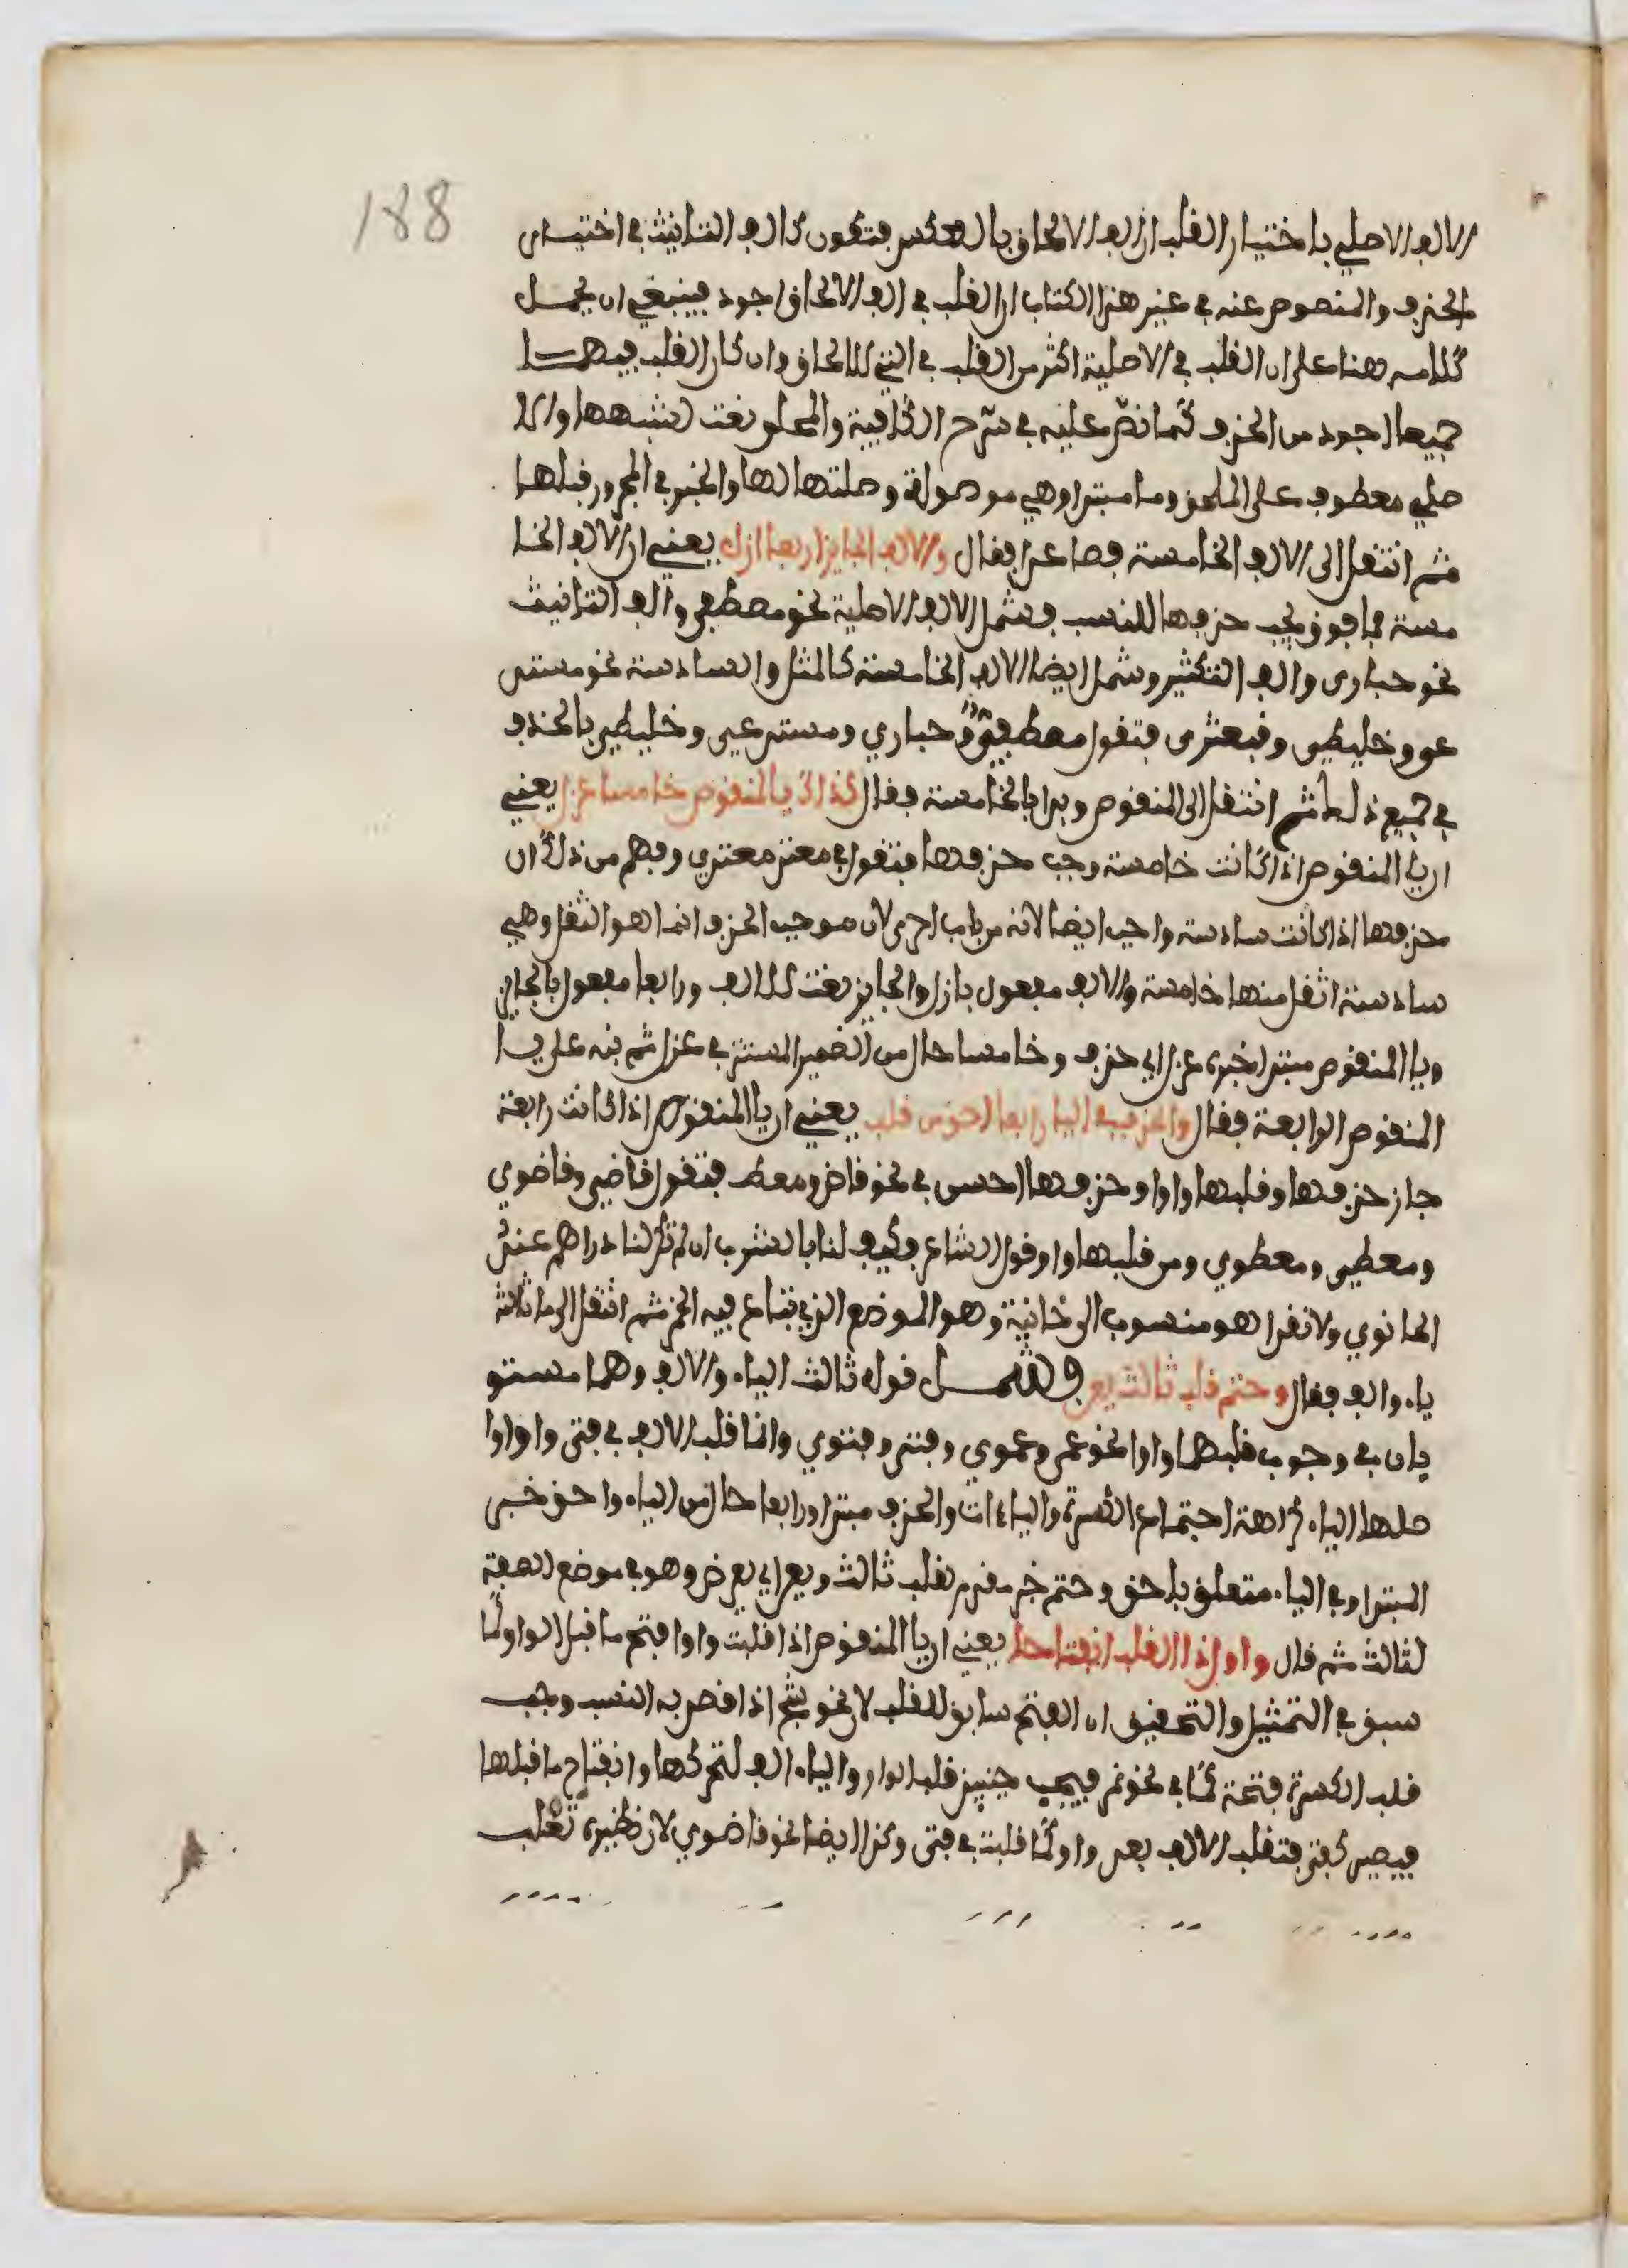 188
الالف الاصلي باختيار القلب ان الف الالحاق بالعكس فتكون كالف التانيث في اختيار
الحذف والمنصوص عنه في غير هذا الكتاب ان القلب في الف الالحاق اجود فينبغي ان يحمل
كلامه هنا على ان القلب في الاصلية اكثر من القلب في التي للالحاق وان كان القلب فيهما
جميعا اجود من الحذف كما نص عليه في شرح الكافية والملحق نعت لشبهها والا
صلي معطوف على الملحق وما مبتدا وهي موصولة وصلتها لها والخبر في المجرور قبلها
ثم انتقل الى الالف الخامسة فصاعدا فقال والالف الجايز اربعا ازل يعني ان الالف الخا
مسة فما فوق يجب حذفها للنسب فشمل الالف الاصلية نحو مصطفى والف التانيث
نحو حبارى والف التكثير وشمل ايضا الالف الخامسة كالمثل والسادسة نحو مستد
عو وخليطى وقبعثرى فتقول مصطفي وحباري ومستدعي وخليطي بالحذف
في جميع ذلك ثم انتقل الى المنقوص وبدا بالخامسة فقال كذاك يا المنقوص خامسا عزل يعني
ان يا المنقوص اذا كانت خامسة وجب حذفها فتقول في معتد معتدي وفهم من ذلك ان
حذفها اذا كانت سادسة واجب ايضا لانه من باب احرى لان موجب الحذف انما هو الثقل وهي
سادسة اثقل منها خامسة والالف مفعول بازل والجايز نعت للالف ورابعا مفعول بالجايز
ويا المنقوص مبتدا خبره عزل اي حذف وخامسا حال من الضمير المستتر في عزل ثم نبه على يا
المنقوص الرابعة فقال والحذف في اليا رابعا احق من قلب يعني ان يا المنقوص اذا كانت رابعة
جاز حذفها وقلبها واوا وحذفها احسن في نحو قاض ومعط فتقول قاضي وقاضوي
ومعطي ومعطوي ومن قلبها واوا قول الشاعر وكيف لنا بالشرب ان لم تكن لنا دراهم عند
الحانوي ولا نقدا هو منسوب الى حانية وهو الموضع الذي تباع فيه الخمر ثم انتقل الى ما ثالثه
ياء والف فقال وحتم قلب ثالث يعن فشمل قوله ثالث الياء والالف وهما مستو
يان في وجوب قلبهما واوا نحو عم وعموي وفتى وفتوي وانما قلب الالف في فتى واوا وا
صلها الياء كراهة اجتماع الكسرة والياءات والحذف مبتدا ورابعا حال من الياء واحق خبر
المبتدا وفي الياء متعلق باحق وحتم خبر مقدم لقلب ثالث ويعن اي يعرض وهو في موضع الصفة
لثالث ثم قال واول ذا القلب انفتاحا يعني ان يا المنقوص اذا قلبت واوا فتح ما قبل الواو كما
سبق في التمثيل والتحقيق ان الفتح سابق للقلب لان نحو شج اذا قصد به النسب وجب
قلب الكسرة فتحة كما في نحو نمر فيجب حينيذ قلب الواو والياء الف لتحركها وانفتاح ما قبلها
فيصير كفتى فتقلب الالف بعد واوا كما قلبت في فتى وكذا ايضا نحو قاضوي لان نظيره تغلب